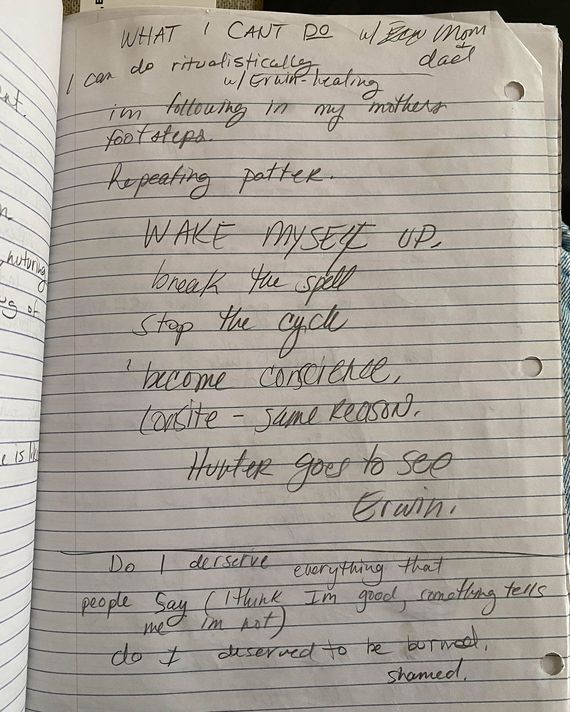 WHAT I CANT DO w/ Mom
+
dad
I can do ritualistically
w/ Erwin-healing
im following in my mothers
footsteps.
Repeating patter.
WAKE MYSELF UP.
break the spell
stop the cycle
become conscience.
Onsite - same REASON.
Hunter goes to see
Erwin.
Do I derserve everything that
people say (I think Im good, something tells
me im not)
do I deserved to be burned.
shamed.
ent.
n
nuturing
ug of
e is